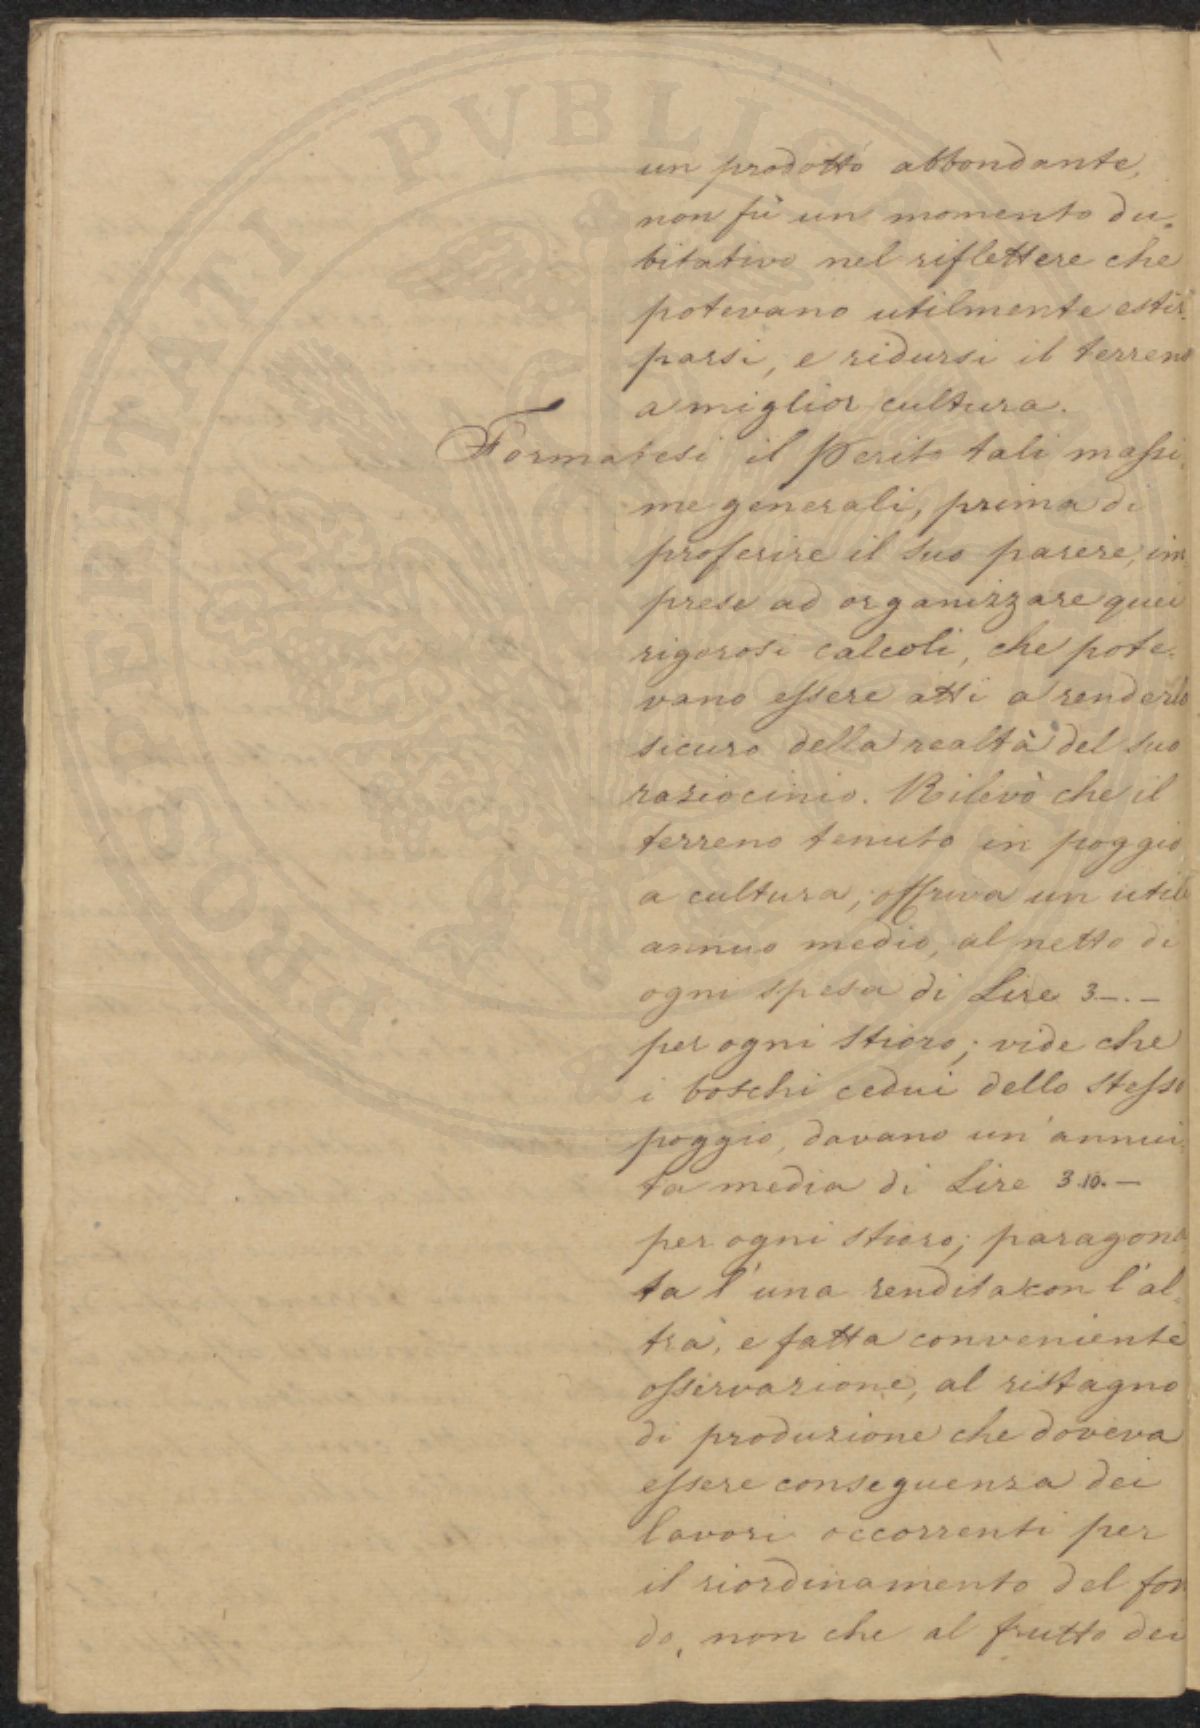 un prodotto abbondante,
non fù un momento du-
bitativo nel riflettere che
potevano utilmente estir-
parsi, e ridursi il terreno
a miglior cultura.
Formatesi il Perito tali massi-
me generali, prima di
proferire il suo parere, im
prese ad organizzare quei
rigorosi calcoli, che pote-
vano essere atti a renderlo
sicuro della realtà del suo
raziocinio. Rilevò che il
terreno tenuto in poggio
a cultura, offriva un utile
annuo medio, al netto di
ogni spesa di Lire 3_._
per ogni stioro; vide che
i boschi cedui dello stesso
poggio, davano un'annui-
ta media di Lire 3.10._
per ogni stioro; paragona
ta l'una rendita con l'al-
tra, e fatta conveniente
osservazione, al ristagno
di produzione che doveva
essere conseguenza dei
lavori occorrenti per
il riordinamento del fon
do, non che al frutto dei
PROSPERITATI PVBLICAE